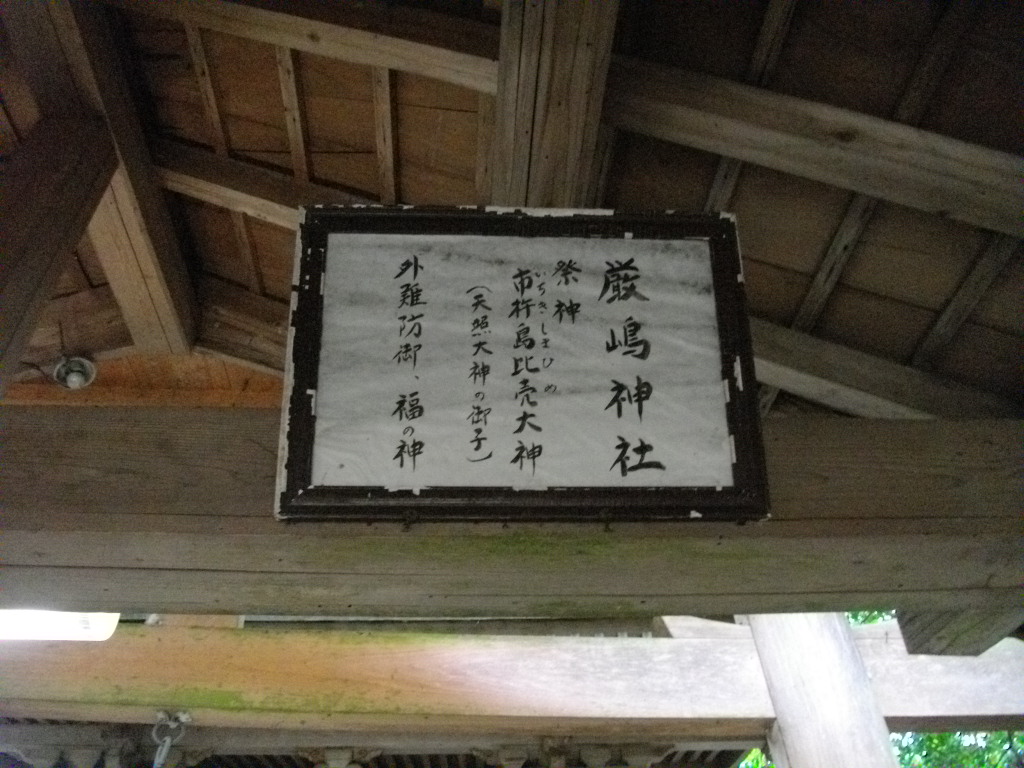 厳嶋神社
祭神
市杵島比売大神
いちきしまひめ
(天照大神の御子)
外難防御、福の神